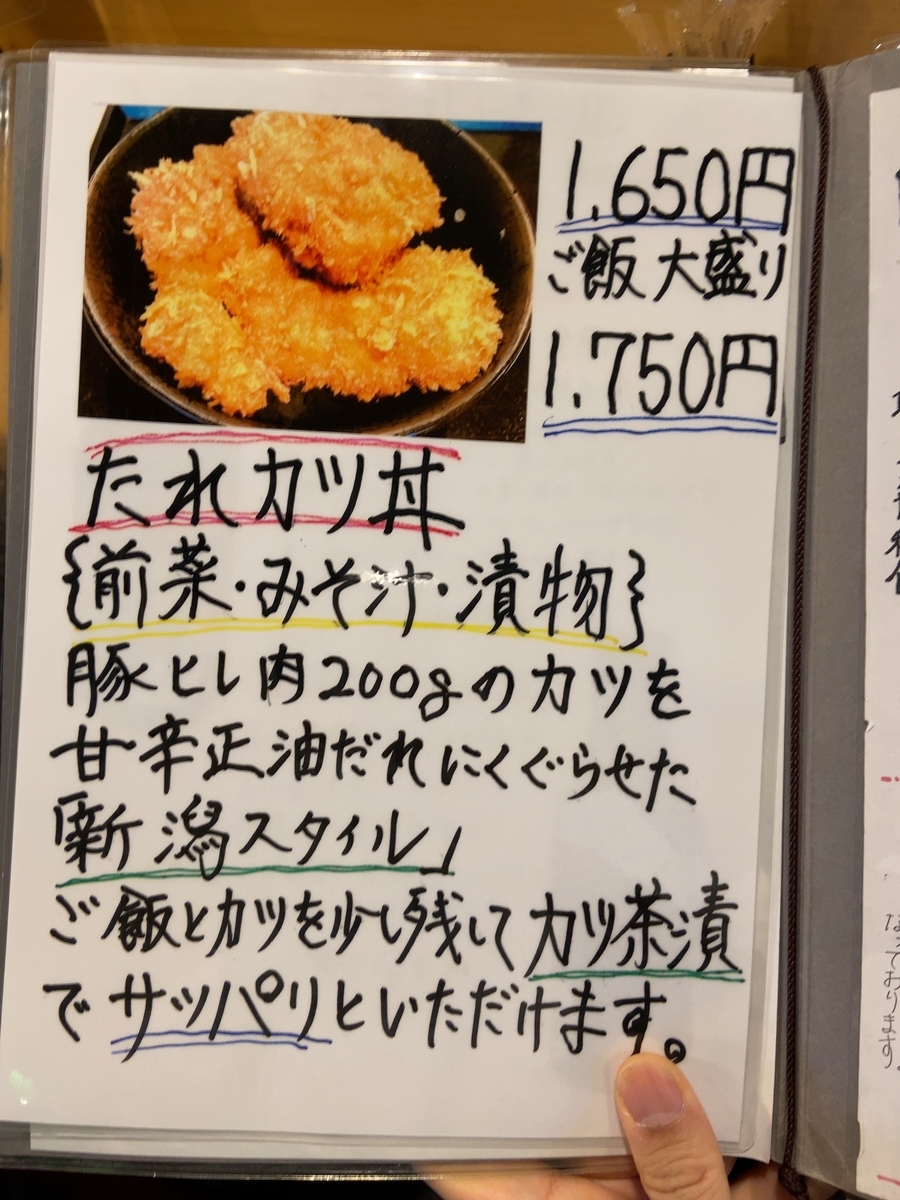 1.650円
ご飯 大盛り
1.750円
たれカツ丼
{前菜・みそ汁・漬物}
豚ヒレ肉200gのカツを
甘辛正油だれにくぐらせた
「新潟スタイル」
ご飯とカツを少し残してカツ茶漬
でサッパリといただけます。
なっております。